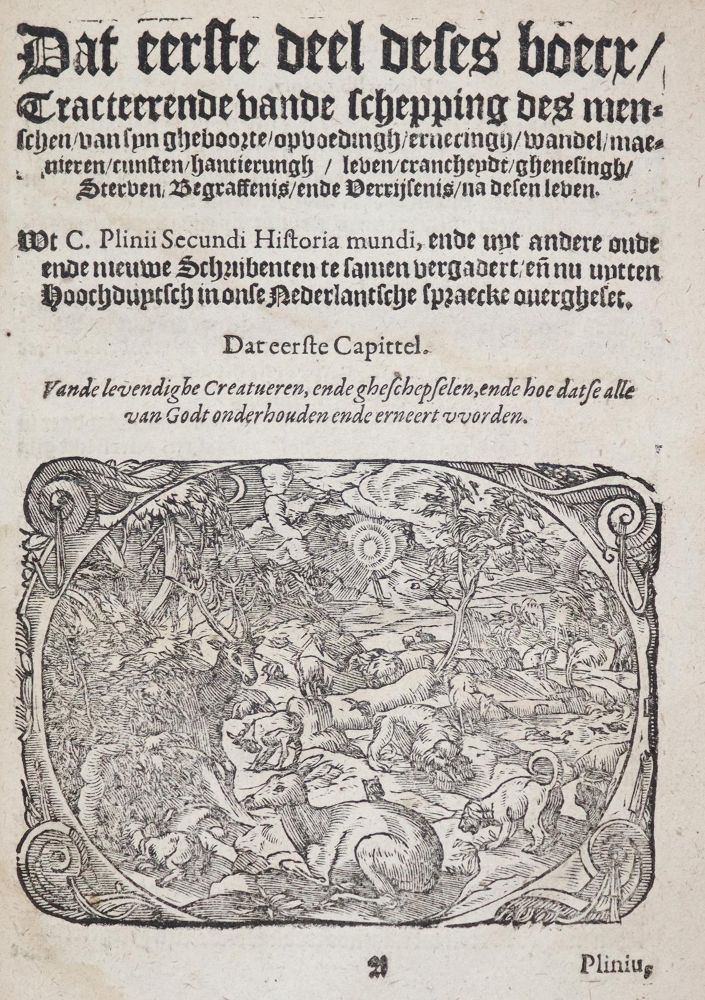 Dat eerste deel deses boecx/
Tracteerende vande schepping des men-
schen/van syn gheboorte/opvoedingh/erneeringh/wandel/mae-
nieren/cunsten/hantierungh / leven/cranckheydt/ghenesingh/
Sterven, Begraffenis/ende Verrijsenis/na desen leven.
Wt C. Plinii Secundi Historia mundi, ende uyt andere oude
ende nieuwe Schrijbenten te samen vergadert/eñ nu uytten
Hoochduytsch in onse Nederlantsche spraecke overgheset.
Dat eerste Capittel.
Vande levendighe Creatueren, ende gheschepselen, ende hoe datse alle
van Godt onderhouden ende erneert vvorden.
A
Plinius